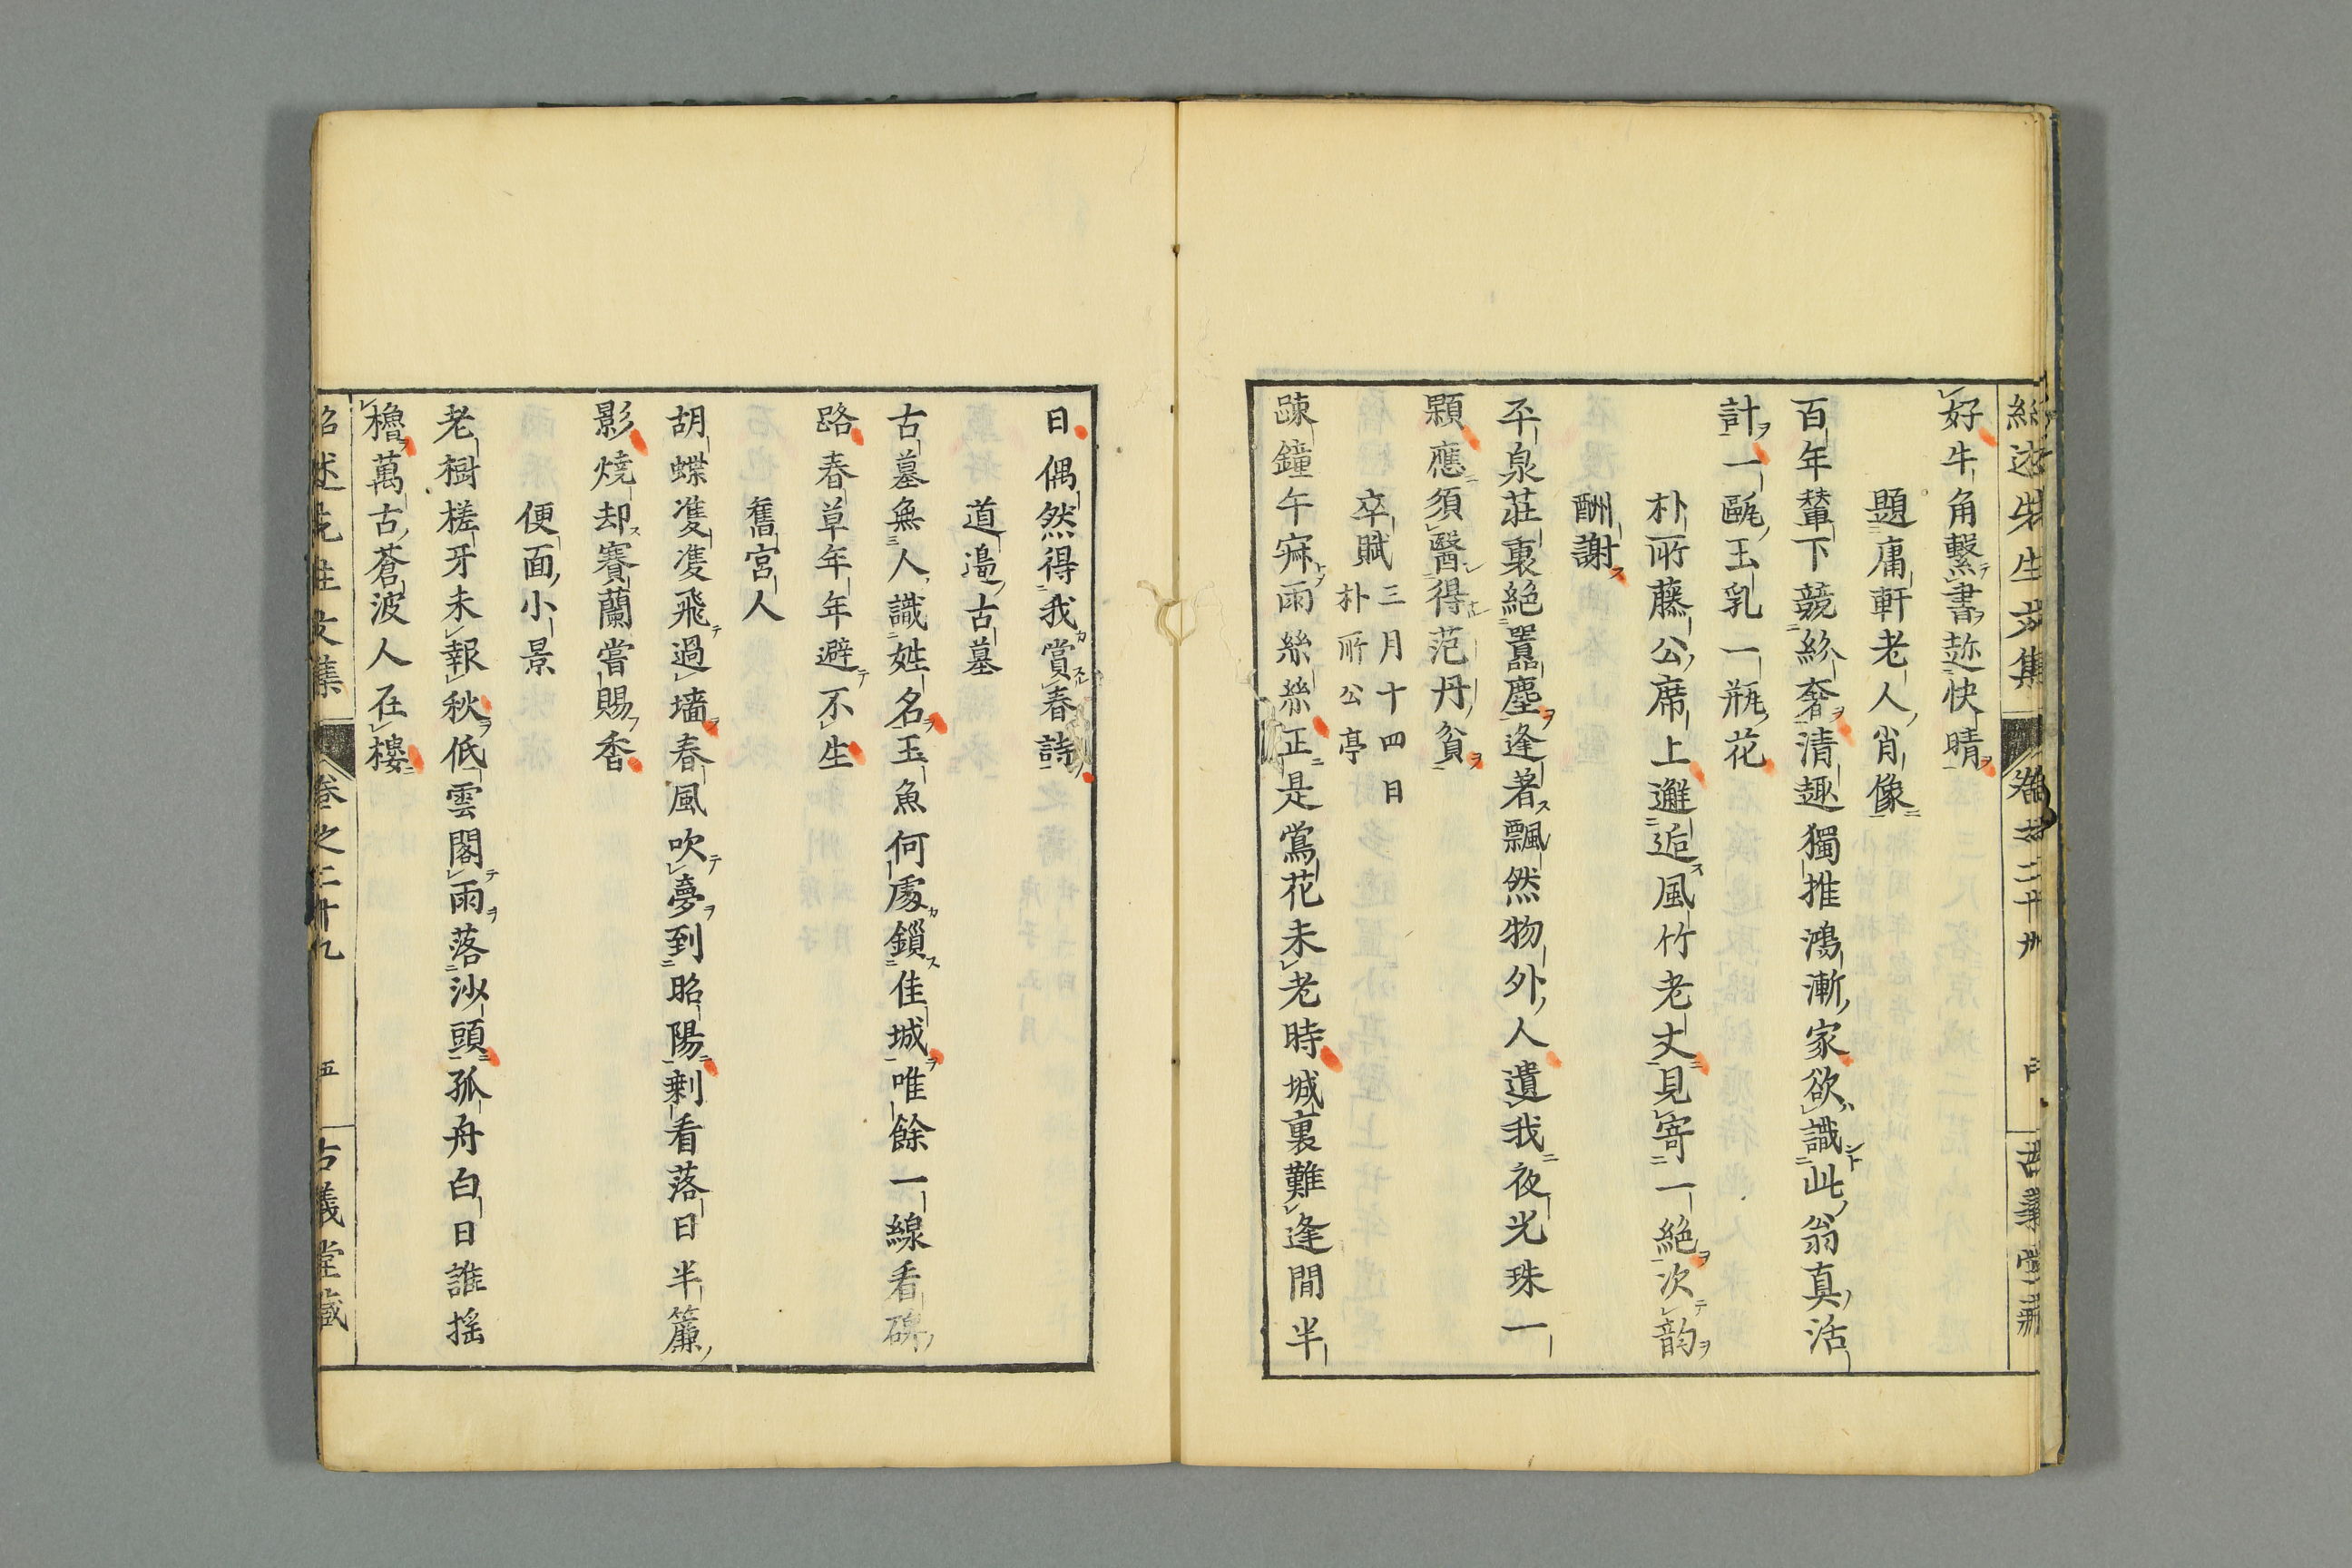 好牛角繫書趂快晴
題庸軒老人肖像
百年輦下競紛奢清趣獨推鴻漸家欲識此翁真活
計一甌玉乳一瓶花
朴所藤公席上邂逅風竹老丈見寄一絶次韵
酬謝
平泉荘裏絕囂塵逢著飄然物外人遺我夜光珠一
顆應須醫得范丹貧
卒賦三月十四日
朴所公亭
踈鐘午寐雨絲絲正是鶯花未老時城裏難逢閒半
日偶然得我賞春詩
道邉古墓
古墓無人識姓名玉魚何處鎖佳城唯餘一線看碑
路春草年年避不生
舊宮人
胡蝶𨾏𨾏飛過墻春風吹夢到昭陽剰看落日半簾
影燒却賽蘭嘗賜香
便面小景
老樹槎牙未報秋低雲閣雨落沙頭孤舟白日誰搖
櫓萬古蒼波人在樓
紹述先生文集
卷之二十九
五
古義堂藏